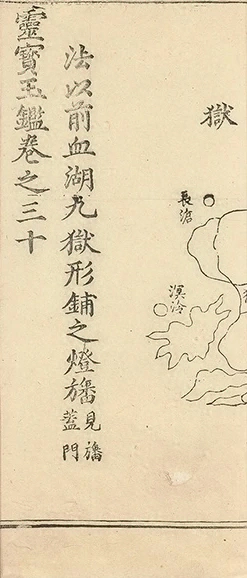 獄
長滄
溟泠
法以前血湖九獄形鋪之燈旛見旛
蓋門
靈寶玉鑑卷之三十